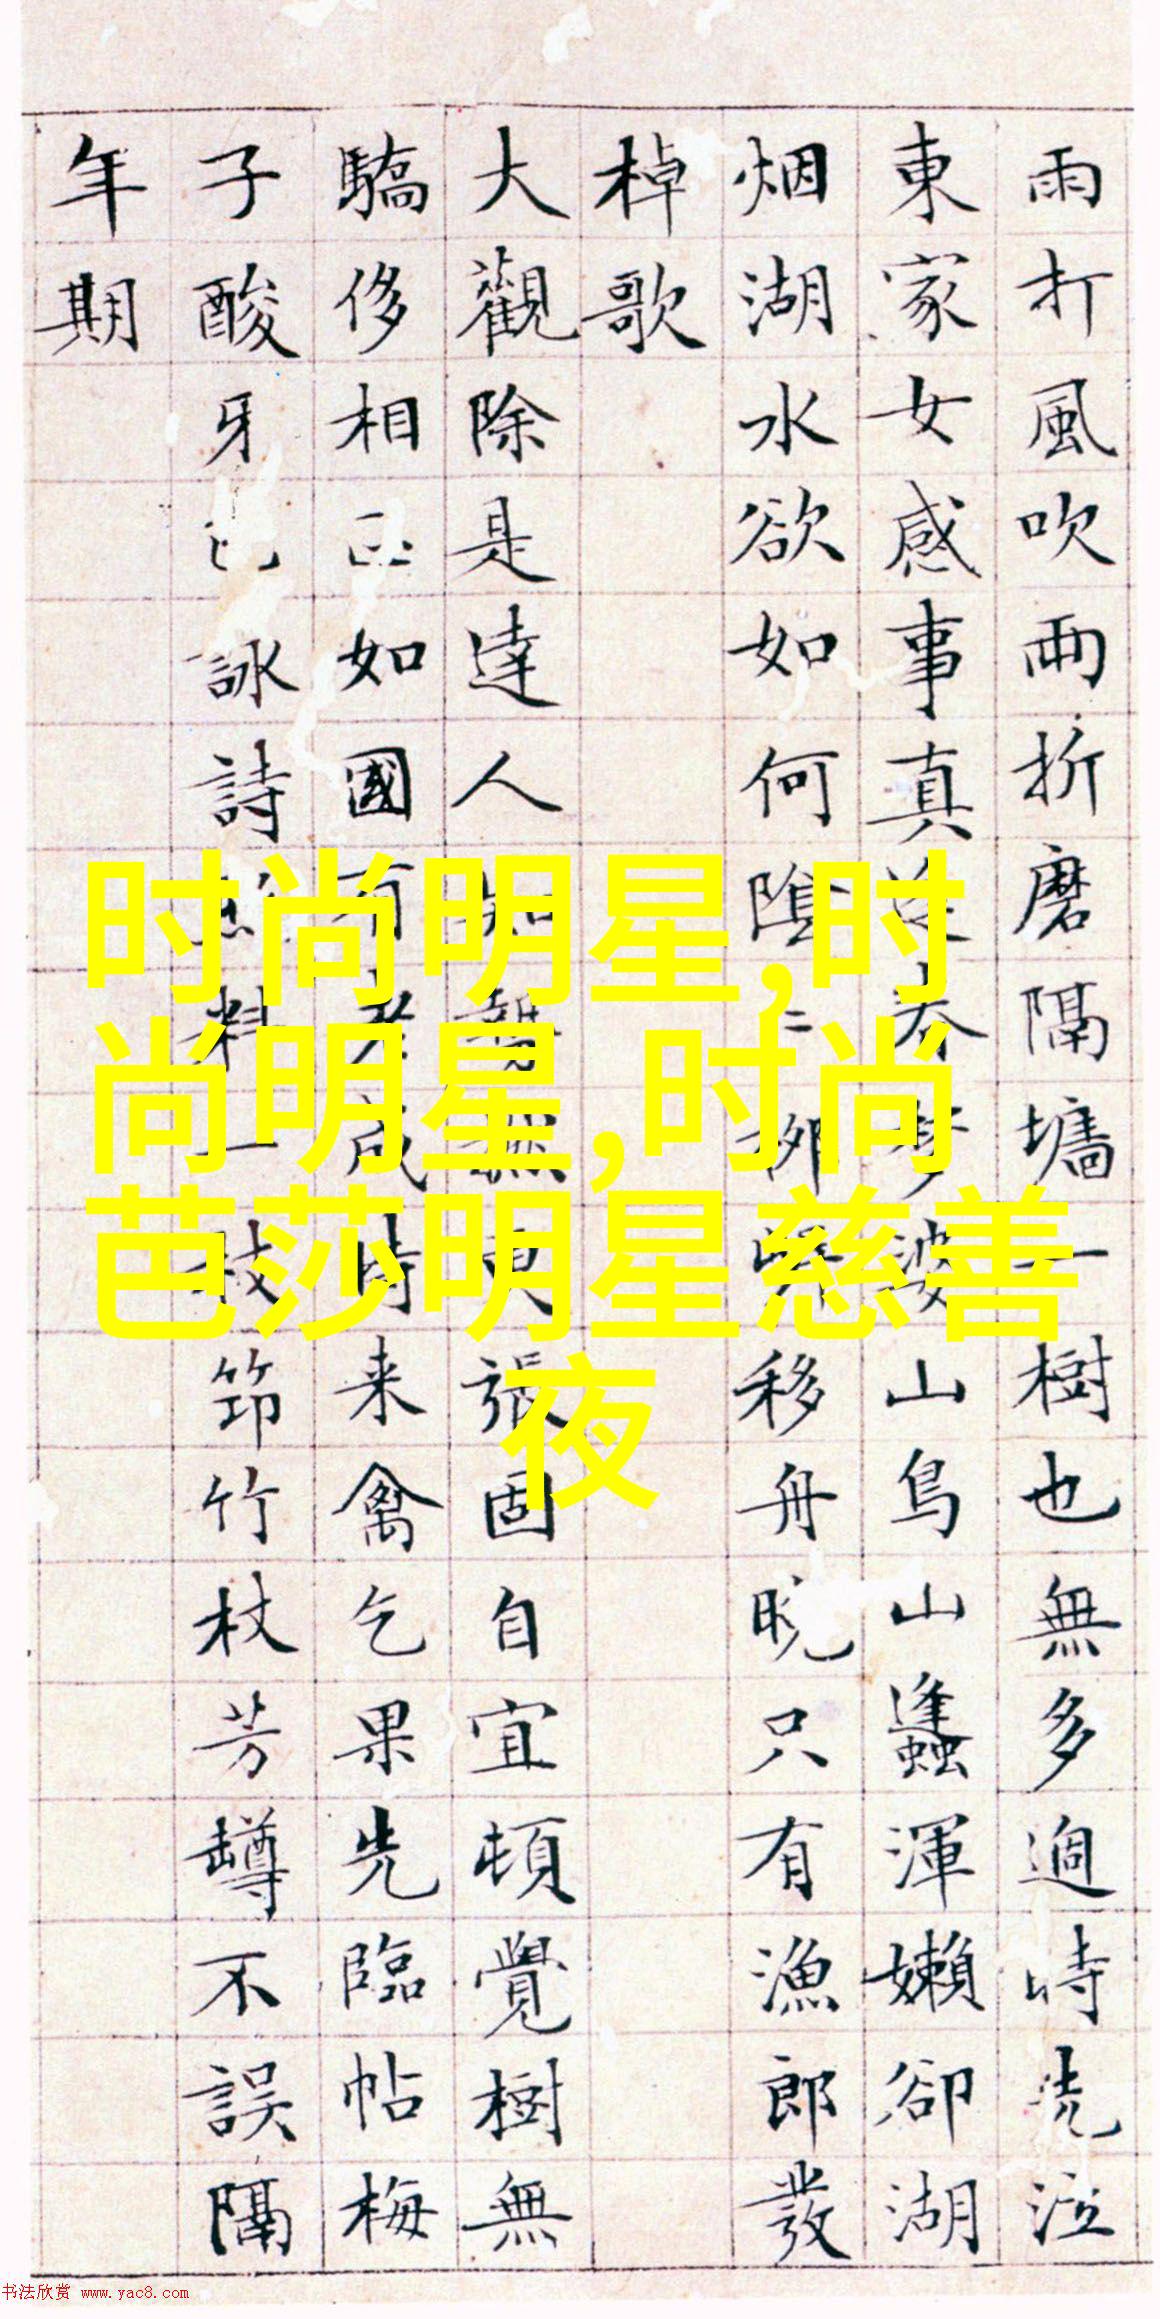 雨打風吹兩折磨隔墻一樹也無多過時洗泣
東家女感事真 春夢婆山鳥山蠭渾嬾卻湖
烟湖水欲如何陰 柳 移舟晚只有漁郎發
棹歌
大觀除是達人知 更張固自宜頓覺樹無
驕侈相 如國有老成時来禽乞果先臨帖梅
子酸牙 詠詩 料一枝筇竹杖芳罇不誤隔
年期
时尚明星,时
尚明星,时尚
芭莎明星慈善
夜
书法欣赏 www.yac8.com